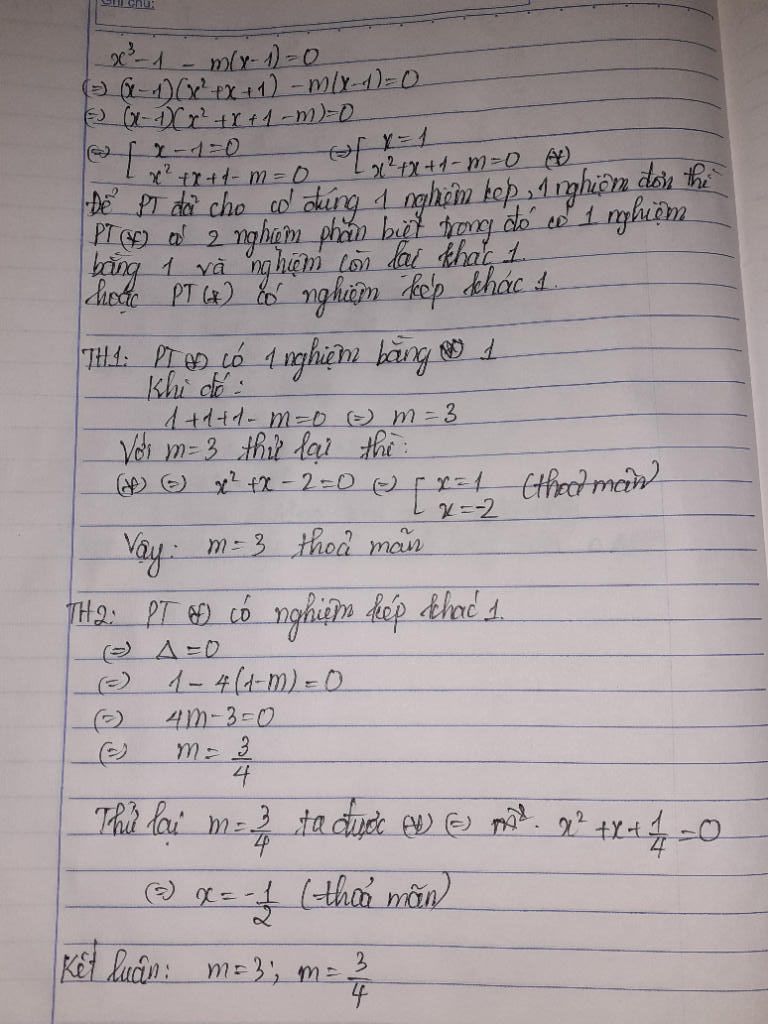 Ghi chú:
x³ - 1 - m(x-1) = 0
(=) (x-1)(x² + x + 1) - m(x-1) = 0
(=) (x-1)(x² + x + 1 - m) = 0
(=) [ x - 1 = 0 (=) [ x = 1
x² + x + 1 - m = 0 x² + x + 1 - m = 0 (*)
Để PT đã cho có đúng 1 nghiệm kép, 1 nghiệm đơn thì
PT (*) có 2 nghiệm phân biệt trong đó có 1 nghiệm
bằng 1 và nghiệm còn lại khác 1.
hoặc PT (*) có nghiệm kép khác 1.
TH1: PT (*) có 1 nghiệm bằng 1
Khi đó:
1 + 1 + 1 - m = 0 (=) m = 3
Với m = 3 thử lại thì:
(*) (=) x² + x - 2 = 0 (=) [ x = 1 (thoả mãn)
x = -2
Vậy: m = 3 thoả mãn
TH2: PT (*) có nghiệm kép khác 1.
(=) Δ = 0
(=) 1 - 4(1-m) = 0
(=) 4m - 3 = 0
(=) m = 3/4
Thử lại m = 3/4 ta được (*) (=) x² + x + 1/4 = 0
(=) x = -1/2 (thoả mãn)
Kết luận: m = 3; m = 3/4